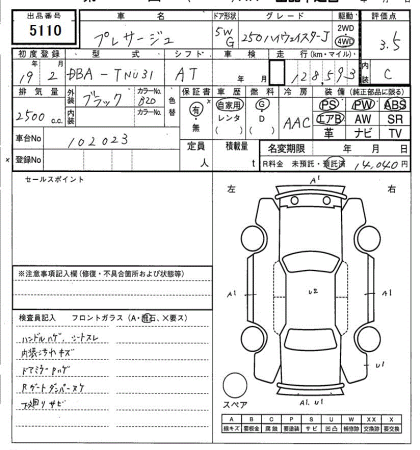 出品番号 車名 ドア形状 グレード 駆動 評価点
5110 プレサージュ 5W G 250ハイウェイスターJ 2WD 4WD 3.5
初度登録 型式 シフト 車検 走行(km・マイル) 内装
19年2月 DBA-TNU31 AT 年 月 12,8593 C
排気量 外装 カラーNo. 色替 保証書 車歴 燃料 冷房 装備(純正部品に限る)
2500 c.c. ブラック B20 有・無 自家用 レンタ ( ) G D ( ) AAC PS PW ABS
内装 カラーNo. エアB AW SR
革 ナビ TV
車台No 102023 定員 人 積載量 t 名変期限 年 月 日
登録No R料金 未預託・預託済 14,040円
セールスポイント 左 右
A1
A1 U2 A1
U1
A1. U1
スペア
※注意事項記入欄(修復・不具合箇所および状態等)
検査員記入 フロントガラス(A・飛石、×要ス)
ハンドルハゲ、シートスレ
内張こちれキズ
ドアミラーPハゲ
Rゲートダンパーヌケ
下廻りサビ
A B C P S U W XX X
線キズ 要板金 腐蝕 要塗装 サビ 凹凸 補修跡 交換跡 要交換